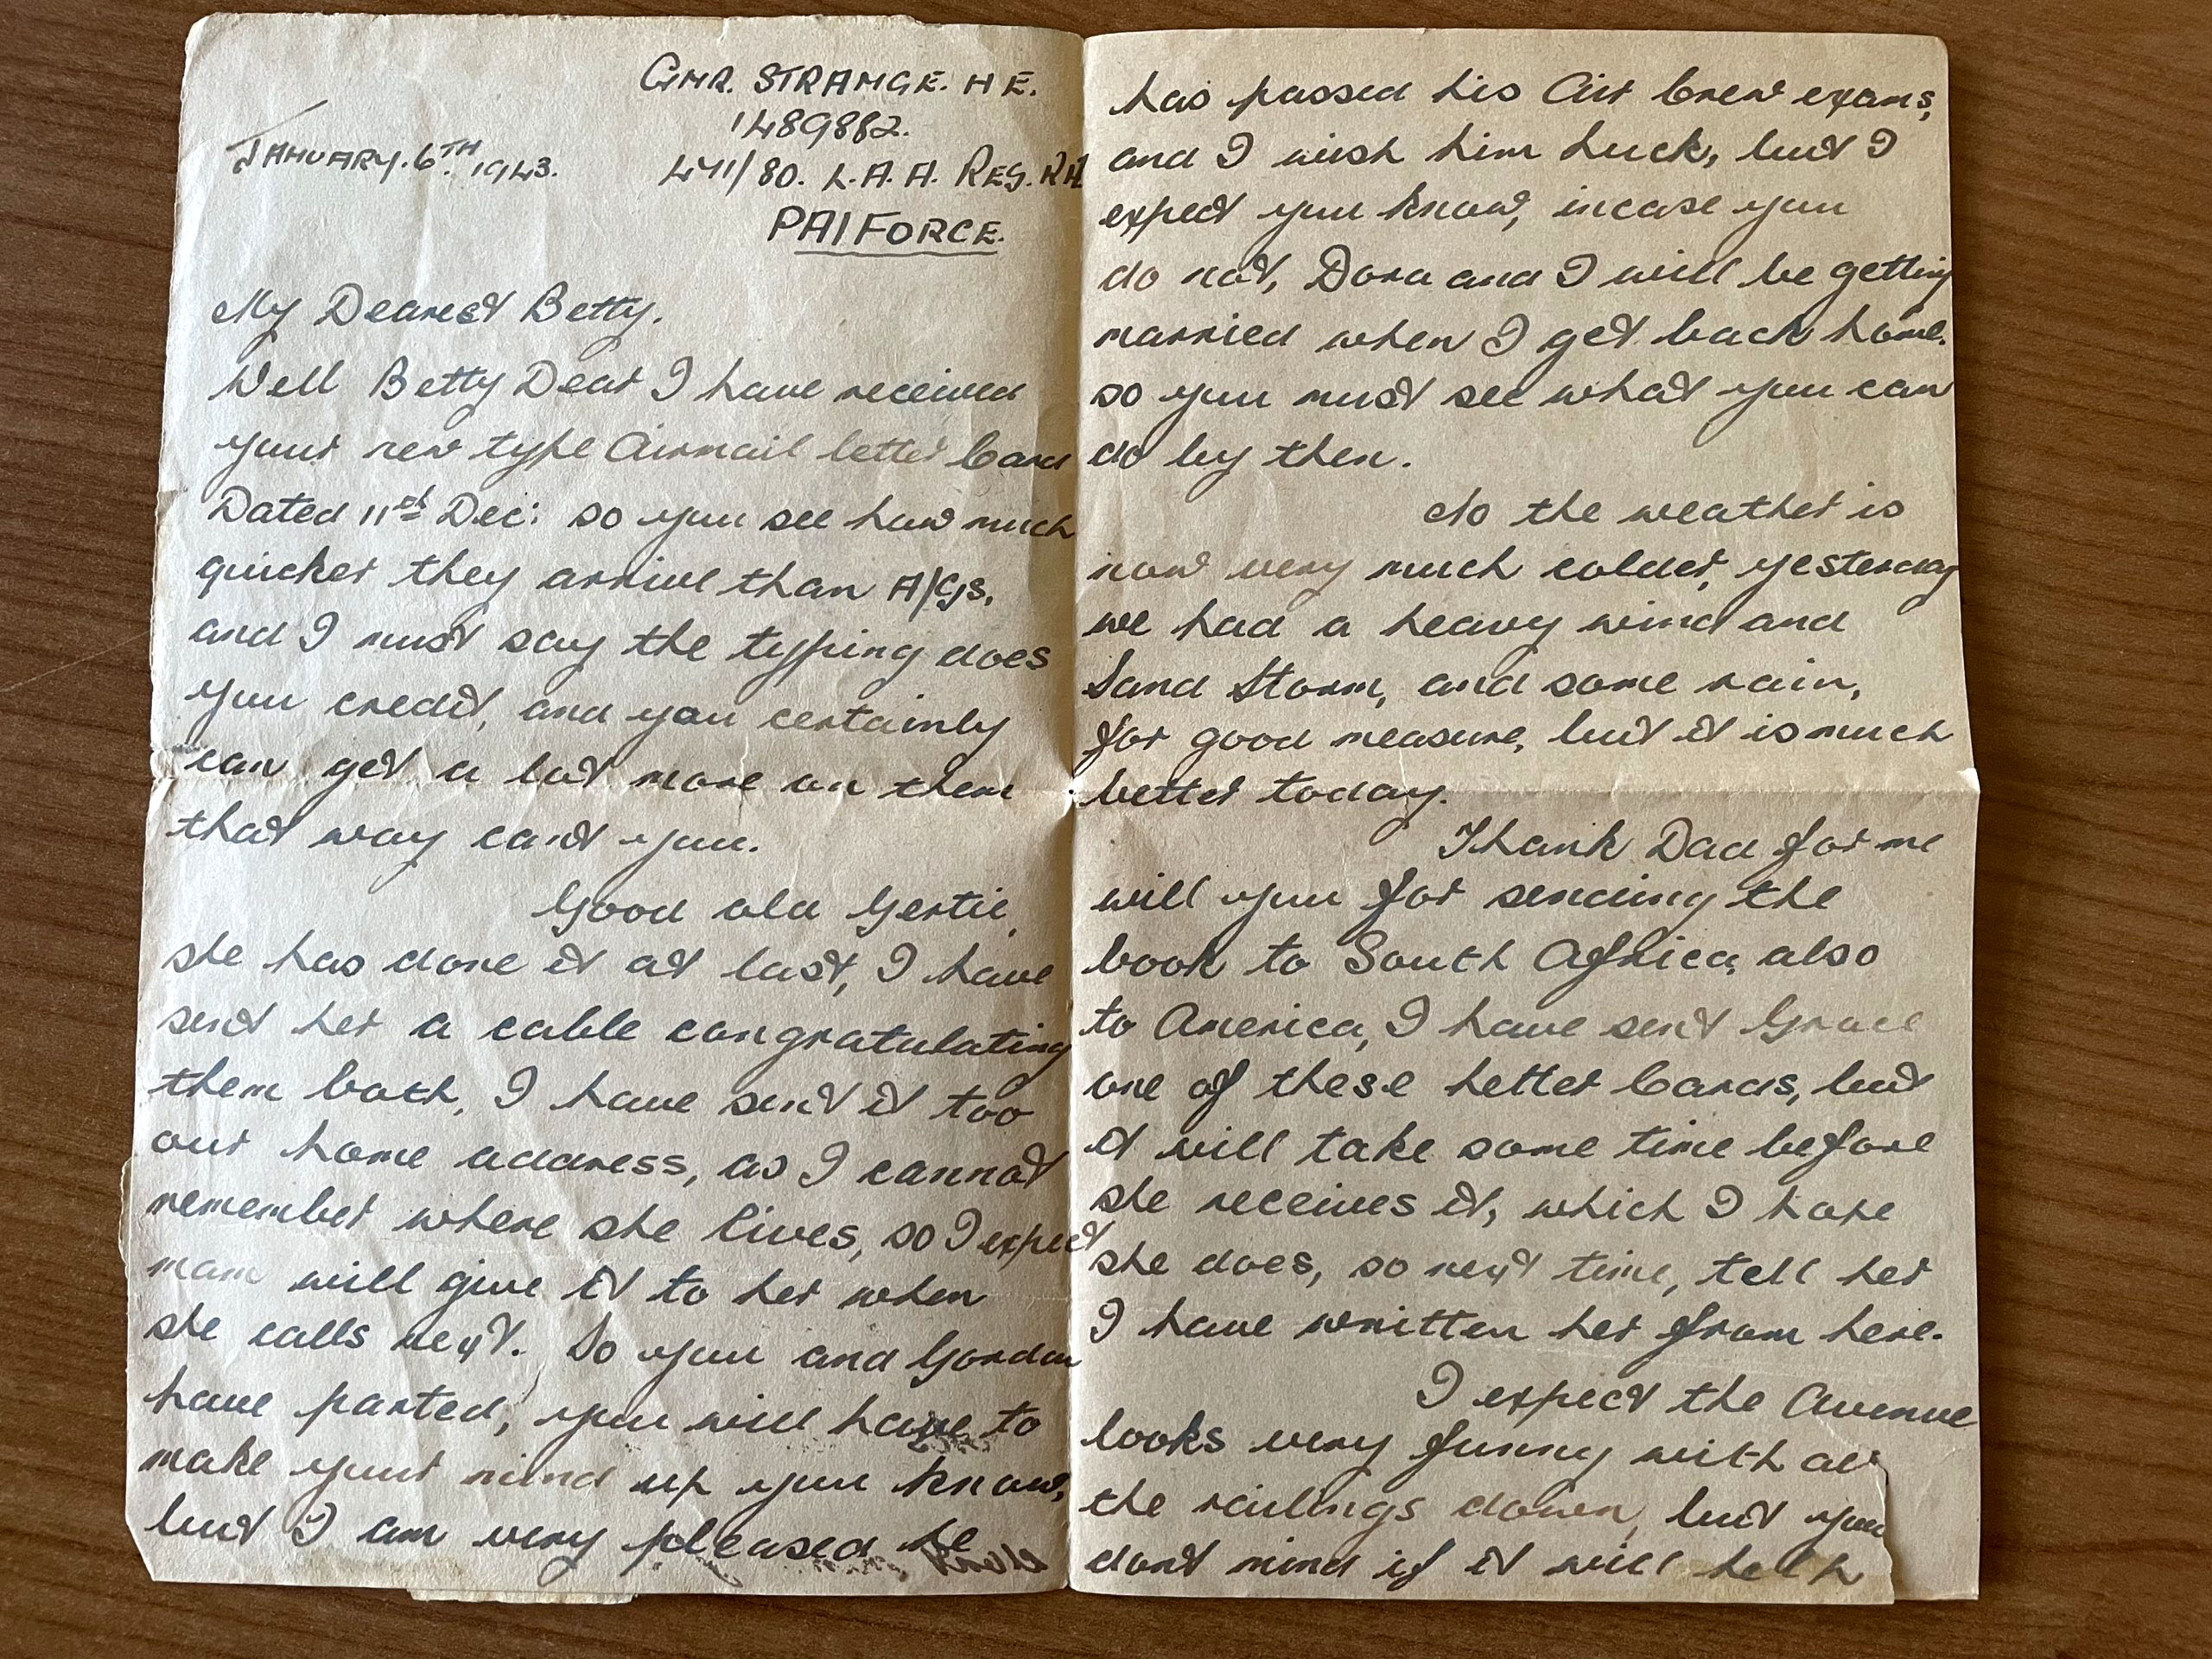 GNR. STRANGE. H E.
1489882.
JANUARY. 6TH. 1943.
441/80. L. A. A. REG. RA
PAIFORCE.
My Dearest Betty.
Well Betty Dear I have received
your new type Airmail letter Card
Dated 11st Dec: so you see how much
quicker they arrive than A/Gs,
and I must say the typing does
you credit, and you certainly
can get a lot more on them
that way can't you.
Good old Gertie,
she has done it at last, I have
sent her a cable congratulating
them both, I have sent it too
our home address, as I cannot
remember where she lives, so I expect
mam will give it to her when
she calls next. So you and Gordon
have parted, you will have to
make your mind up you know,
but I am very pleased he
has passed his Air Crew exams,
and I wish him Luck, but I
expect you know, incase you
do not, Dora and I will be getting
married when I get back home.
so you must see what you can
do by then.
So the weather is
now very much colder, yesterday
we had a heavy wind and
Sand Storm, and some rain,
for good measure, but it is much
better today.
Thank Dad for me
will you for sending the
book to South Africa, also
to America, I have sent Grace
one of these Letter Cards, but
it will take some time before
she receives it, which I hope
she does, so next time, tell her
I have written her from here.
I expect the Avenue
looks very funny with all
the railings down, but you
dont mind if it will help